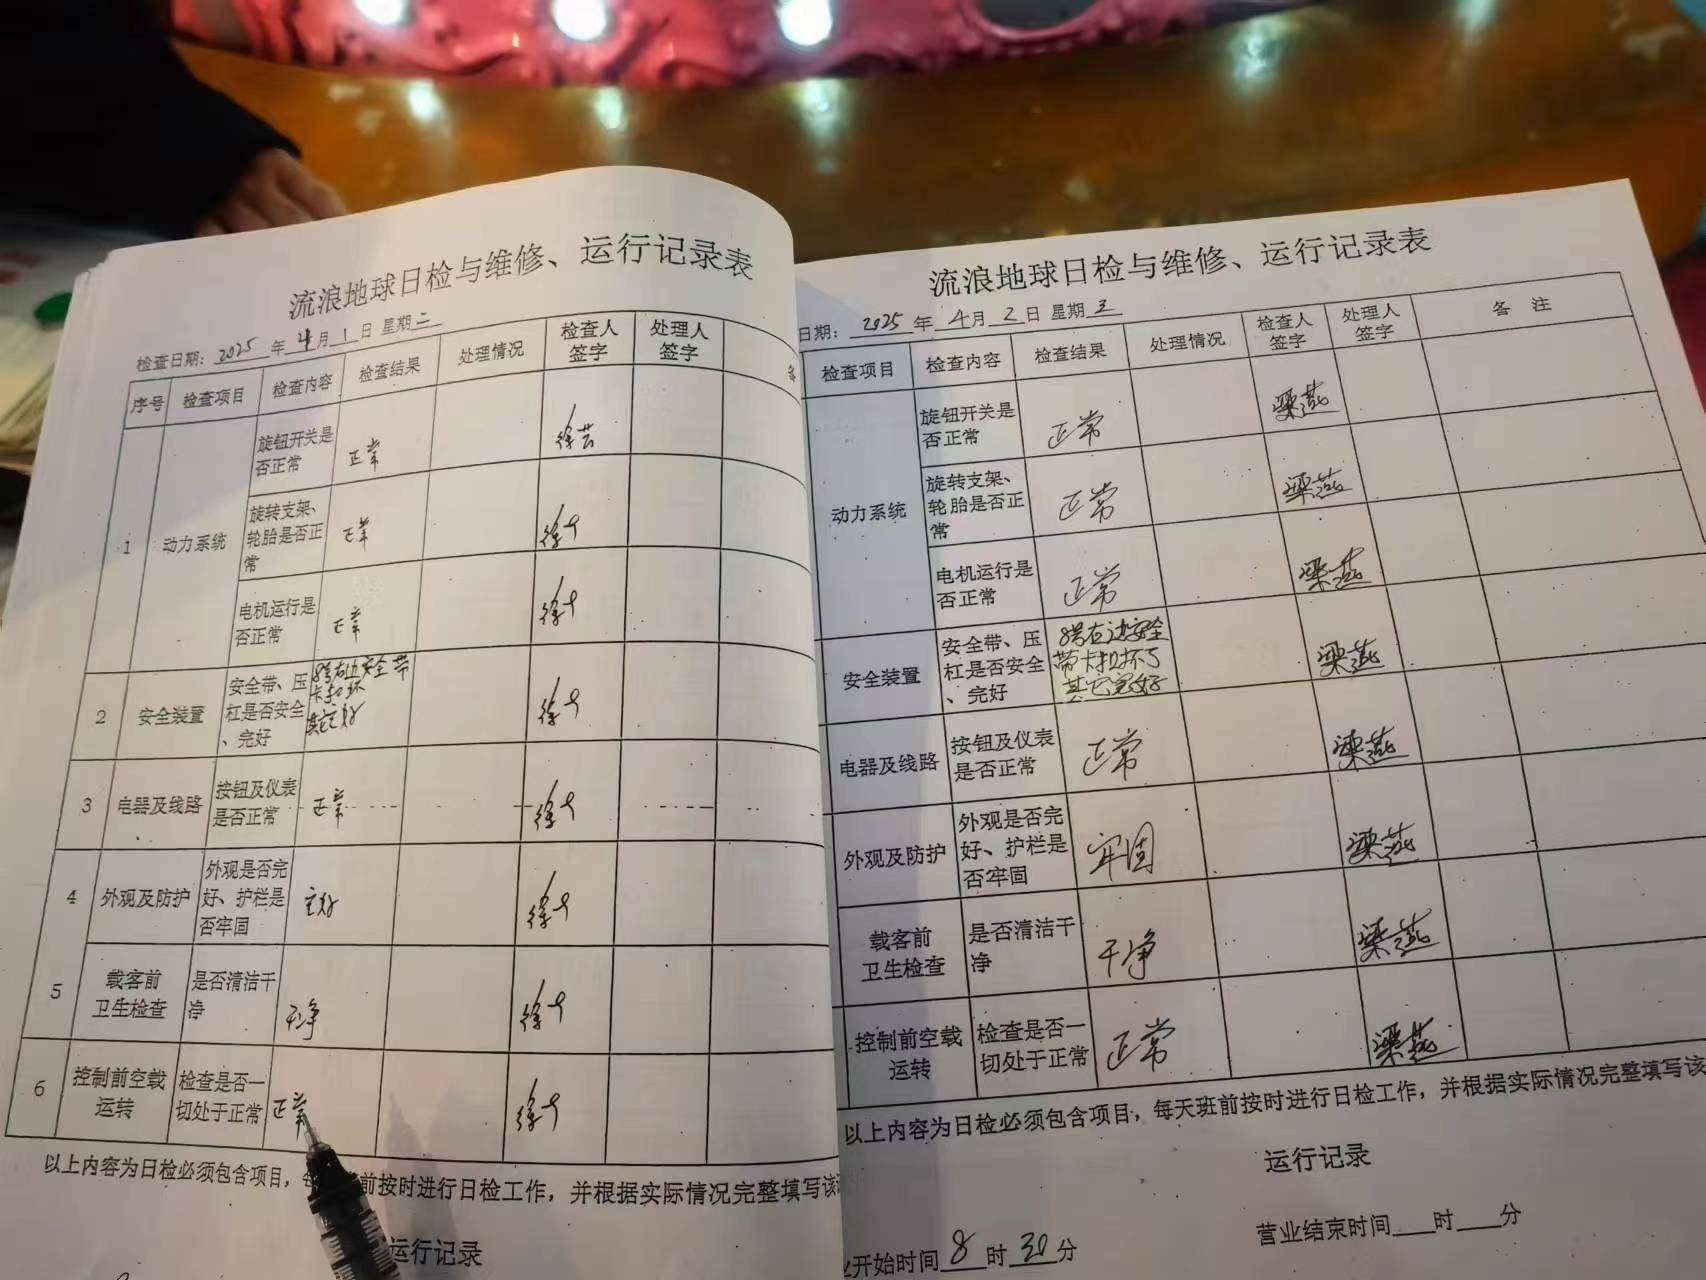 流浪地球日检与维修、运行记录表
检查日期：2025 年 4 月 1 日 星期二
序号 检查项目 检查内容 检查结果 处理情况 检查人签字 处理人签字
1 动力系统
旋钮开关是
否正常 正常 徐芸
旋转支架、
轮胎是否正
常 正常
电机运行是
否正常 正常
2 安全装置
安全带、压
杠是否安全
、完好
8号右边安全带
卡扣坏
其它完好
3 电器及线路
按钮及仪表
是否正常 正常
4 外观及防护
外观是否完
好、护栏是
否牢固 完好
5 载客前
卫生检查
是否清洁干
净 干净
6 控制前空载
运转
检查是否一
切处于正常 正常
以上内容为日检必须包含项目，每
前按时进行日检工作，并根据实际情况完整填写该
运行记录
流浪地球日检与维修、运行记录表
日期：2025 年 4 月 2 日 星期 3
检查项目 检查内容 检查结果 处理情况 检查人签字 处理人签字 备 注
动力系统
旋钮开关是
否正常 正常 梁燕
旋转支架、
轮胎是否正
常 正常 梁燕
电机运行是
否正常 正常 梁燕
安全装置
安全带、压
杠是否安全
、完好
8号右边安全
带卡扣坏了
其它完好
梁燕
电器及线路
按钮及仪表
是否正常 正常 梁燕
外观及防护
外观是否完
好、护栏是
否牢固 牢固 梁燕
载客前
卫生检查
是否清洁干
净 干净 梁燕
控制前空载
运转
检查是否一
切处于正常 正常 梁燕
以上内容为日检必须包含项目，每天班前按时进行日检工作，并根据实际情况完整填写该
运行记录
开始时间 8 时 30 分 营业结束时间 时 分